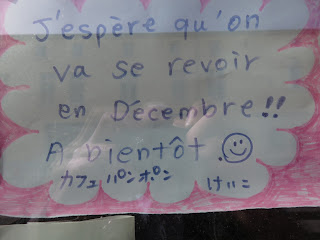 J'espère qu'on
va se revoir
en Décembre!!
A bientôt.
カフェパンポン けいこ